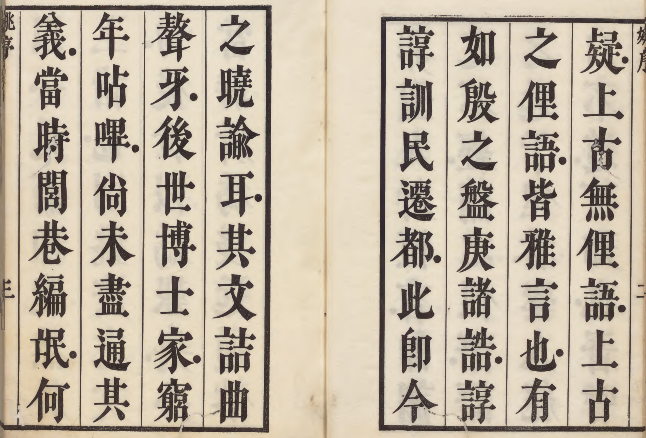 疑。上古無俚語。上古
之俚語。皆雅言也。有
如殷之盤庚諸誥。諄
諄訓民遷都。此卽今
之曉諭耳。其文詰曲
聱牙。後世博士家。窮
年呫嗶。尚未盡通其
義。當時閭巷編氓。何